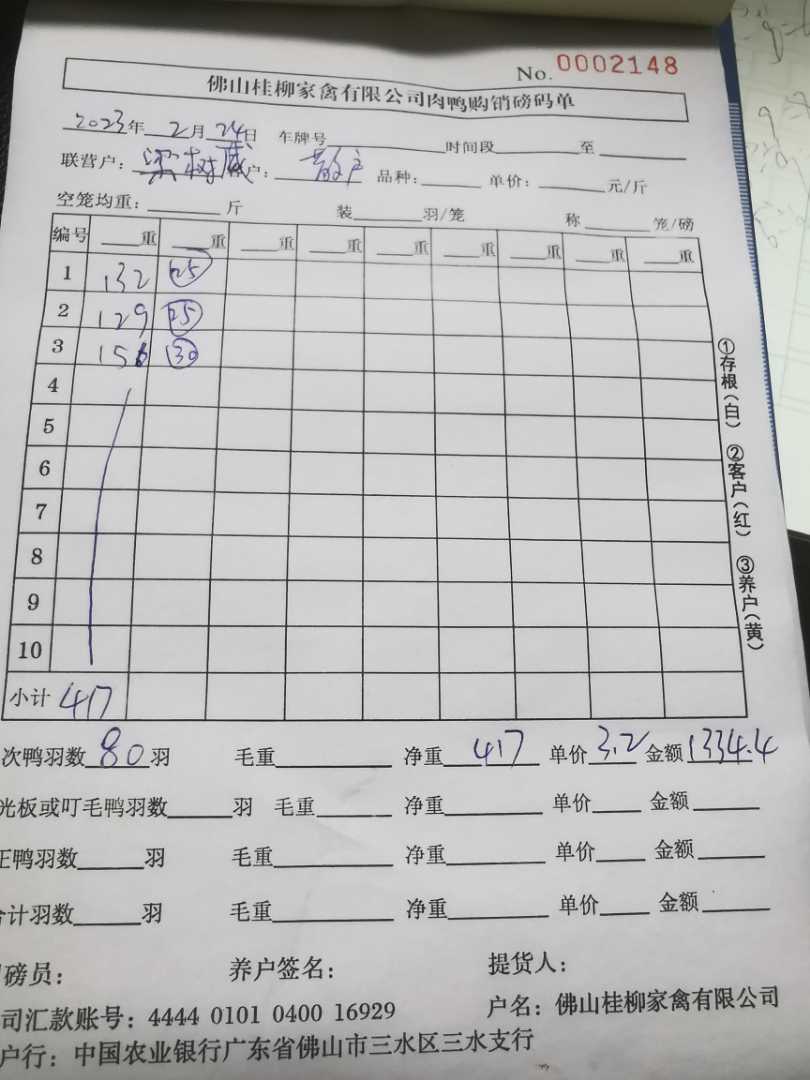 No. 0002148
佛山桂柳家禽有限公司肉鸭购销磅码单
2023年 2月 24日 车牌号 时间段 至
联营户: 梁树威 户: 散户 品种: 单价: 元/斤
空笼均重: 斤 装 羽/笼 称 笼/磅
编号 重 重 重 重 重 重 重 重 重
1 132 25
2 129 25
3 156 30
4
5
6
7
8
9
10
小计 417
①存根(白) ②客户(红) ③养户(黄)
次鸭羽数 80 羽 毛重 净重 417 单价 3.2 金额 1334.4
光板或叮毛鸭羽数 羽 毛重 净重 单价 金额
正鸭羽数 羽 毛重 净重 单价 金额
合计羽数 羽 毛重 净重 单价 金额
磅员: 养户签名: 提货人:
司汇款账号: 4444 0101 0400 16929 户名: 佛山桂柳家禽有限公司
户行: 中国农业银行广东省佛山市三水区三水支行